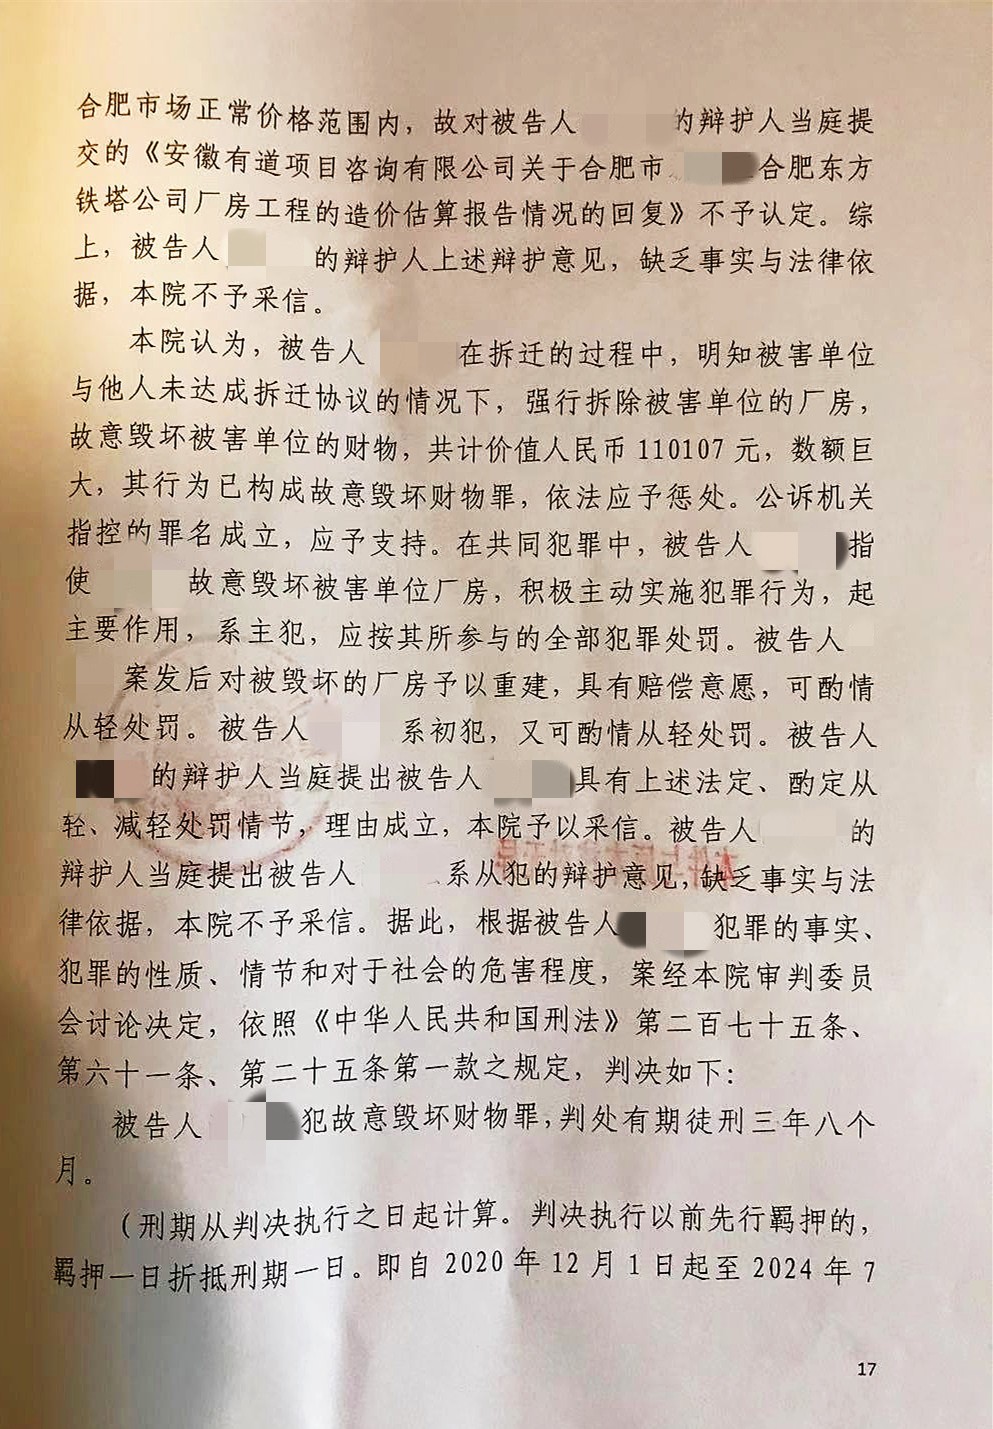 合肥市场正常价格范围内，故对被告人 的辩护人当庭提
交的《安徽有道项目咨询有限公司关于合肥市 合肥东方
铁塔公司厂房工程的造价估算报告情况的回复》不予认定。综
上，被告人 的辩护人上述辩护意见，缺乏事实与法律依
据，本院不予采信。
本院认为，被告人 在拆迁的过程中，明知被害单位
与他人未达成拆迁协议的情况下，强行拆除被害单位的厂房，
故意毁坏被害单位的财物，共计价值人民币 110107 元，数额巨
大，其行为已构成故意毁坏财物罪，依法应予惩处。公诉机关
指控的罪名成立，应予支持。在共同犯罪中，被告人 指
使 故意毁坏被害单位厂房，积极主动实施犯罪行为，起
主要作用，系主犯，应按其所参与的全部犯罪处罚。被告人
案发后对被毁坏的厂房予以重建，具有赔偿意愿，可酌情
从轻处罚。被告人 系初犯，又可酌情从轻处罚。被告人
的辩护人当庭提出被告人 具有上述法定、酌定从
轻、减轻处罚情节，理由成立，本院予以采信。被告人 的
辩护人当庭提出被告人 系从犯的辩护意见，缺乏事实与法
律依据，本院不予采信。据此，根据被告人 犯罪的事实、
犯罪的性质、情节和对于社会的危害程度，案经本院审判委员
会讨论决定，依照《中华人民共和国刑法》第二百七十五条、
第六十一条、第二十五条第一款之规定，判决如下：
被告人 犯故意毁坏财物罪，判处有期徒刑三年八个
月。
（刑期从判决执行之日起计算。判决执行以前先行羁押的，
羁押一日折抵刑期一日。即自 2020 年 12 月 1 日起至 2024 年 7
17